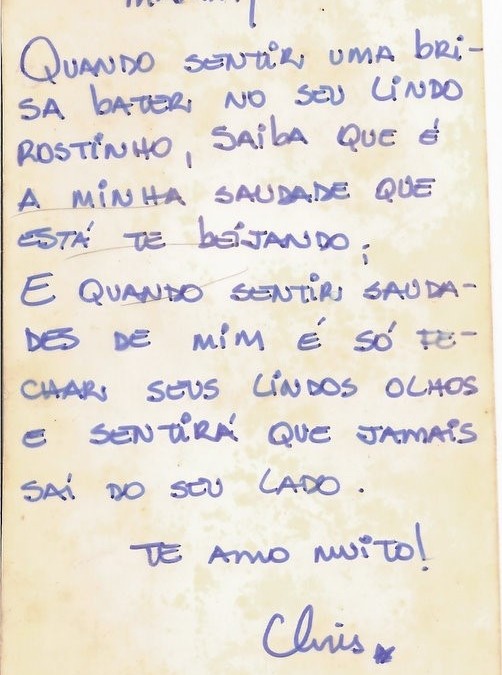 Quando sentir uma bri-
sa bater no seu lindo
rostinho, saiba que é
a minha saudade que
está te beijando;
E quando sentir sauda-
des de mim é só fe-
char seus lindos olhos
e sentirá que jamais
saí do seu lado.
Te amo muito!
Chris